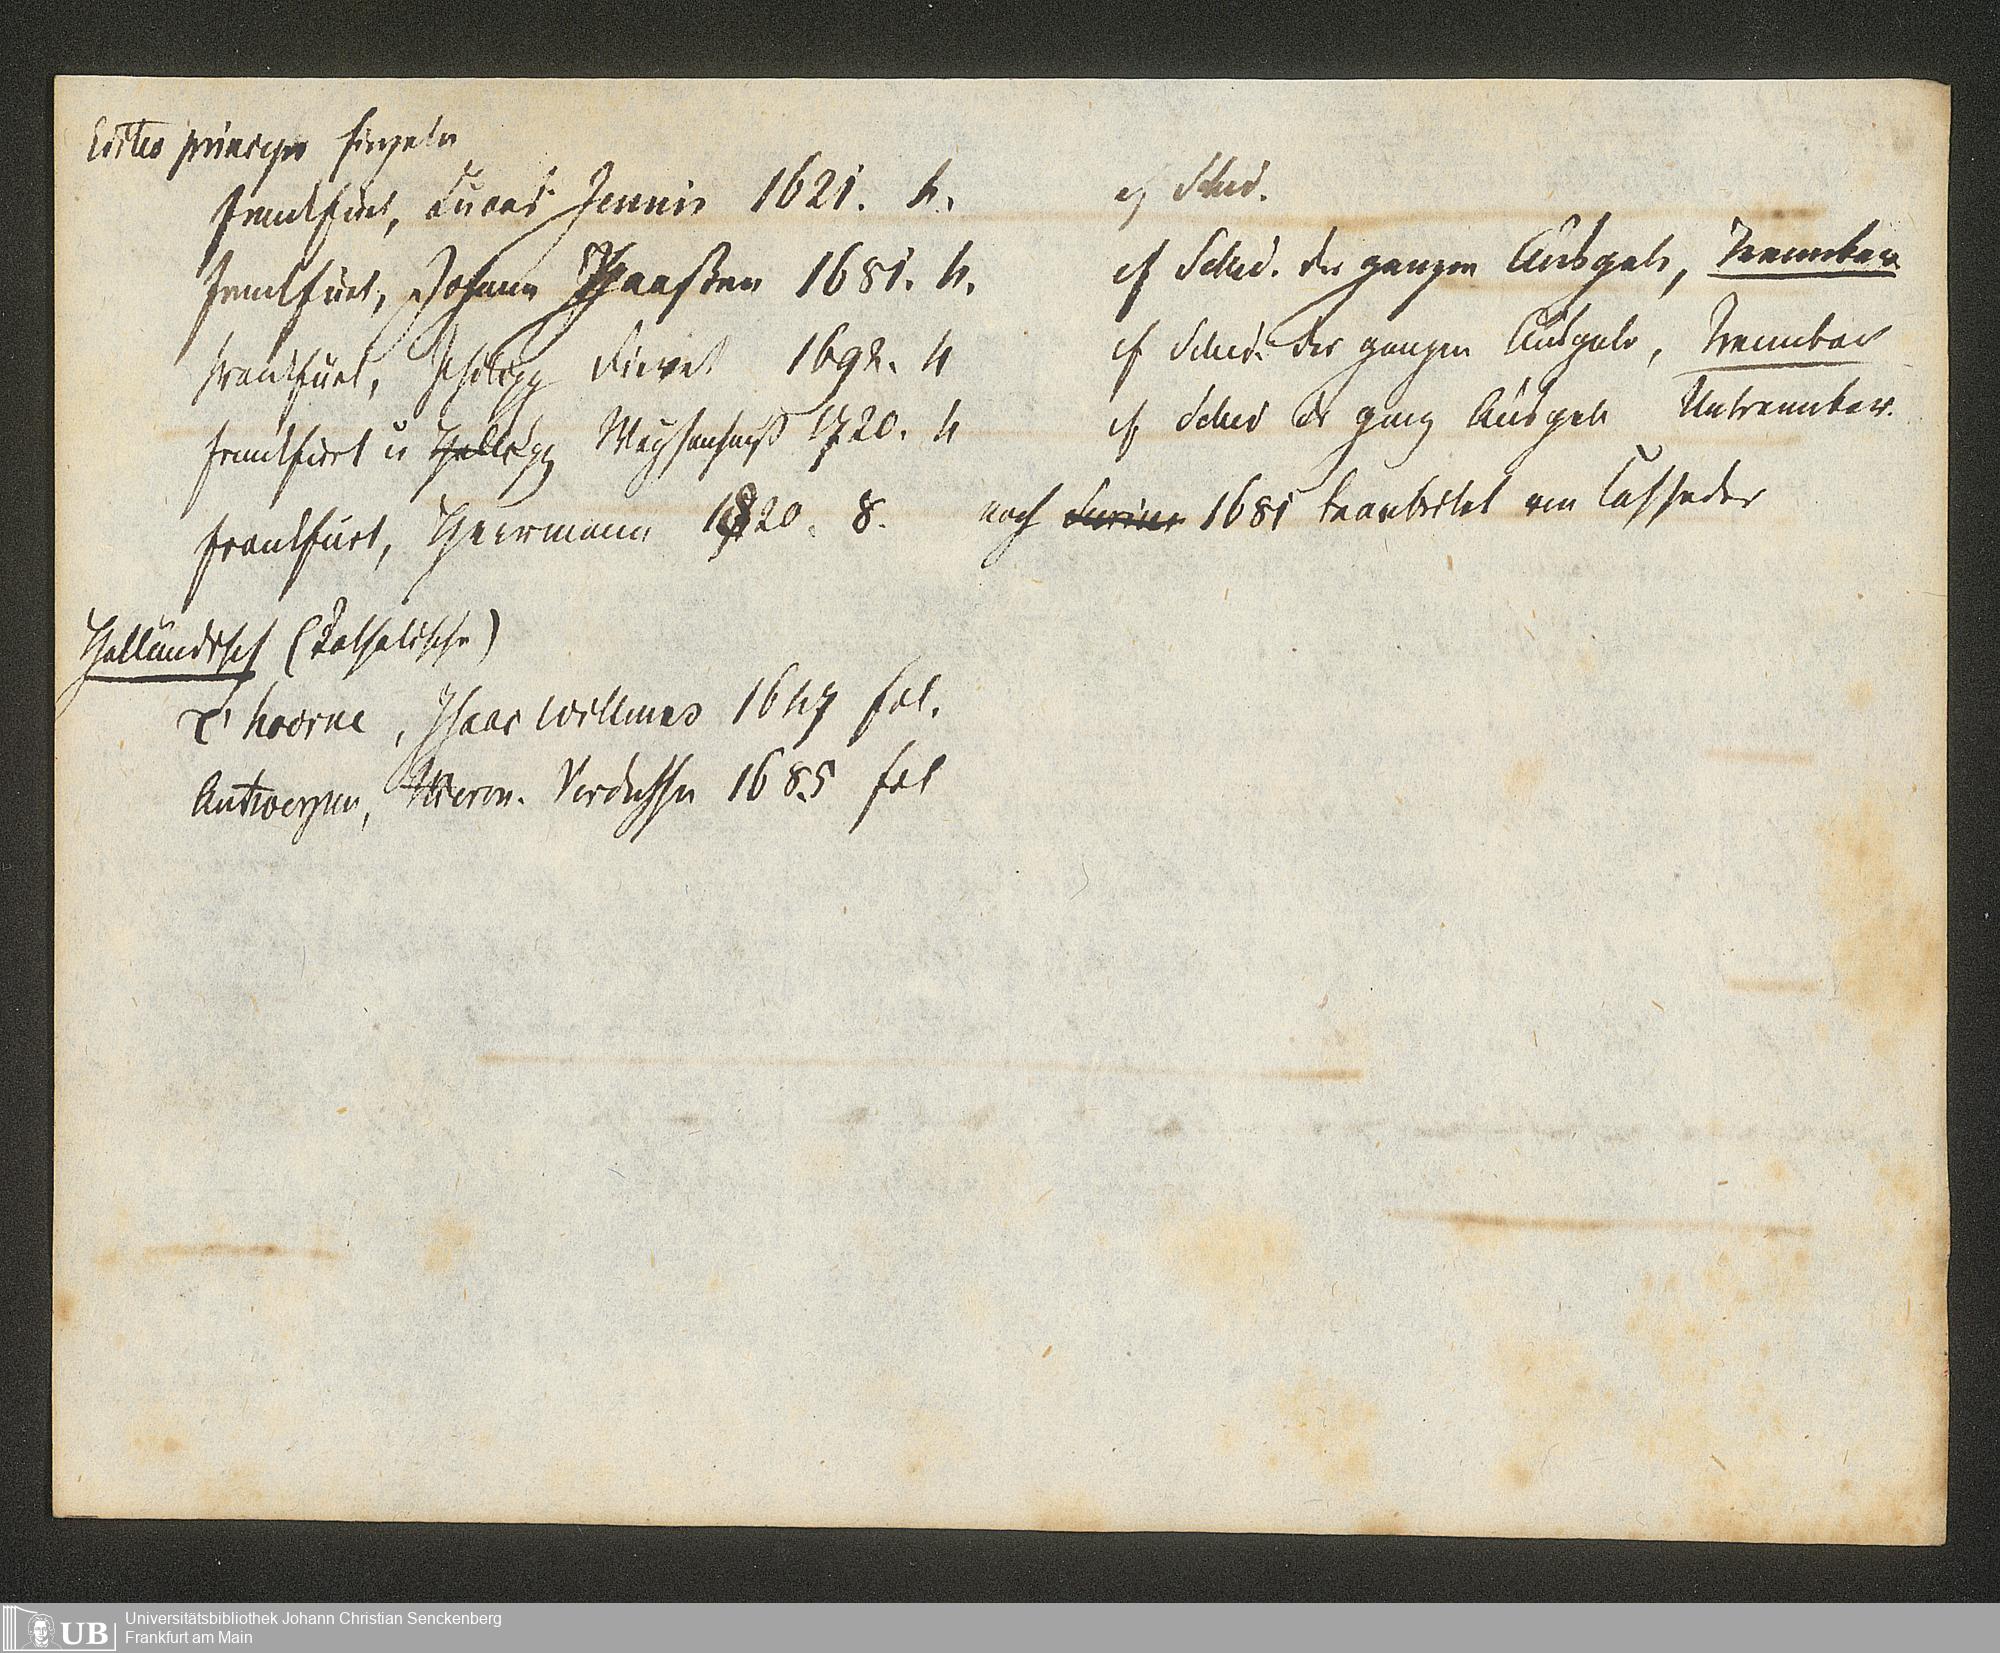 Editio princeps einzeln
Frankfurt, Lucas Jennis 1621. 4. cf Scheid.
Frankfurt, Johann Haaßen 1681. 4. cf Scheid. der ganzen Ausgabe, Trennbar
Frankfurt, Philipp Fievet 1692. 4 cf Scheid. der ganzen Ausgabe, Trennbar
Frankfurt u 1720. 4 cf Scheid der ganz Ausgabe Untrennbar.
Frankfurt, Heermann 1820. 8. nach 1681 bearbeitet von
Holländisch (Katholische)
T' hoorne, Isaac Willemes 1647 fol.
Antwerpen, Hieron. Verdussen 1685 fol
UB
Universitätsbibliothek Johann Christian Senckenberg
Frankfurt am Main